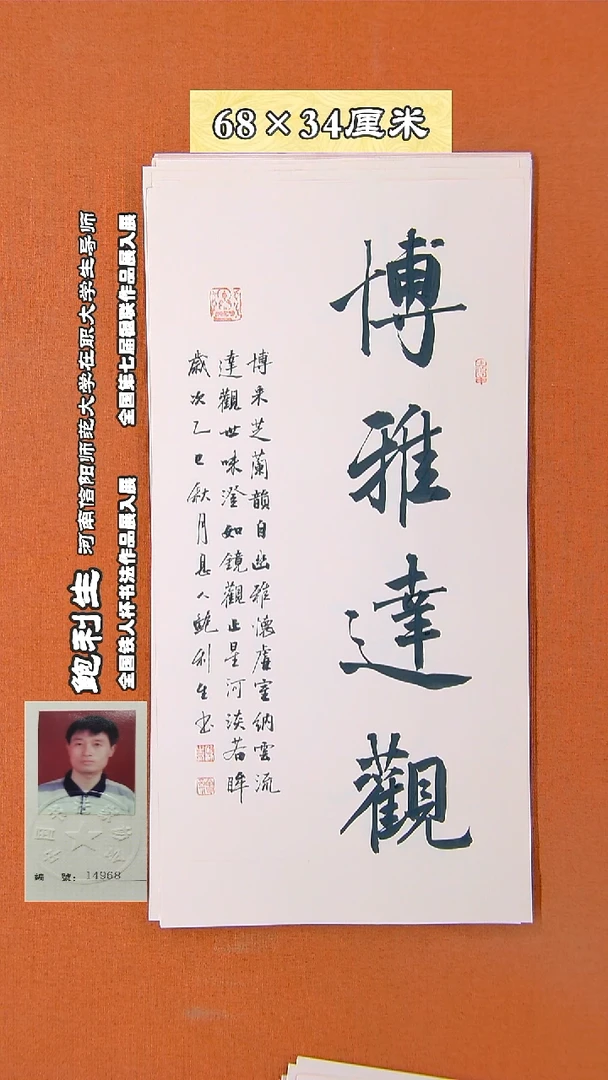 68×34厘米
博雅達觀
博采芝蘭韻自幽雅懷虛室納雲流
達觀世味澄如鏡觀止星河淡若眸
歲次乙巳秋月息人鮑利生书
河南信阳师范大学在职大学生导师
鲍利生
全国第七届楹联作品展入展
全国铁人杯书法作品展入展
編 號：14968